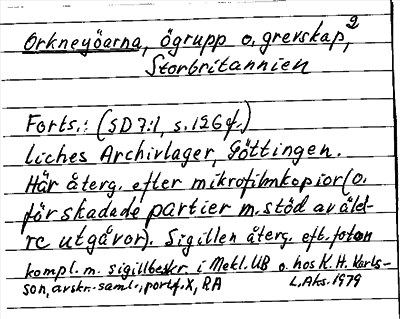 Orkneyöarna, ögrupp o. grevskap, 2
Storbritannien
Forts.: (SD 7:1, s. 126 f.)
liches Archivlager, Göttingen.
Här återg. efter mikrofilmkopior (o.
för skadade partier m. stöd av äld-
re utgåvor). Sigillen återg. eft. foton
kompl. m. sigillbeskr. i Mekl. UB o. hos K. H. Karls-
son, avskr.-saml., portf. X, RA L. Aks. 1979